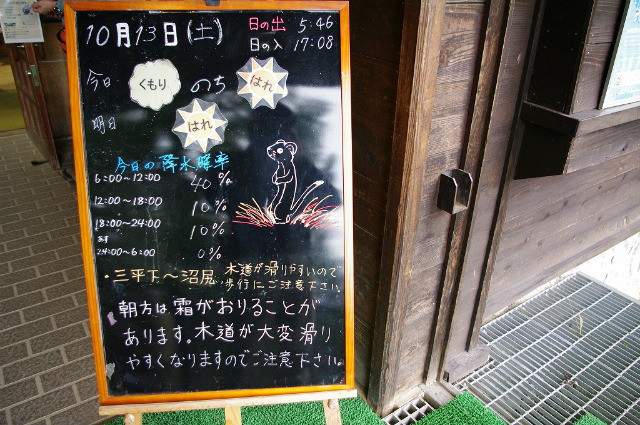 10月13日(土)
日の出 5:46
日の入 17:08
今日 くもり のち はれ
明日 はれ
今日の降水確率
6:00〜12:00 40%
12:00〜18:00 10%
18:00〜24:00 10%
24:00〜6:00 0%
・三平下〜沼尻 木道が滑りやすいので
歩行にご注意下さい。
朝方は霜がおりることが
あります。木道が大変滑り
やすくなりますのでご注意下さい。